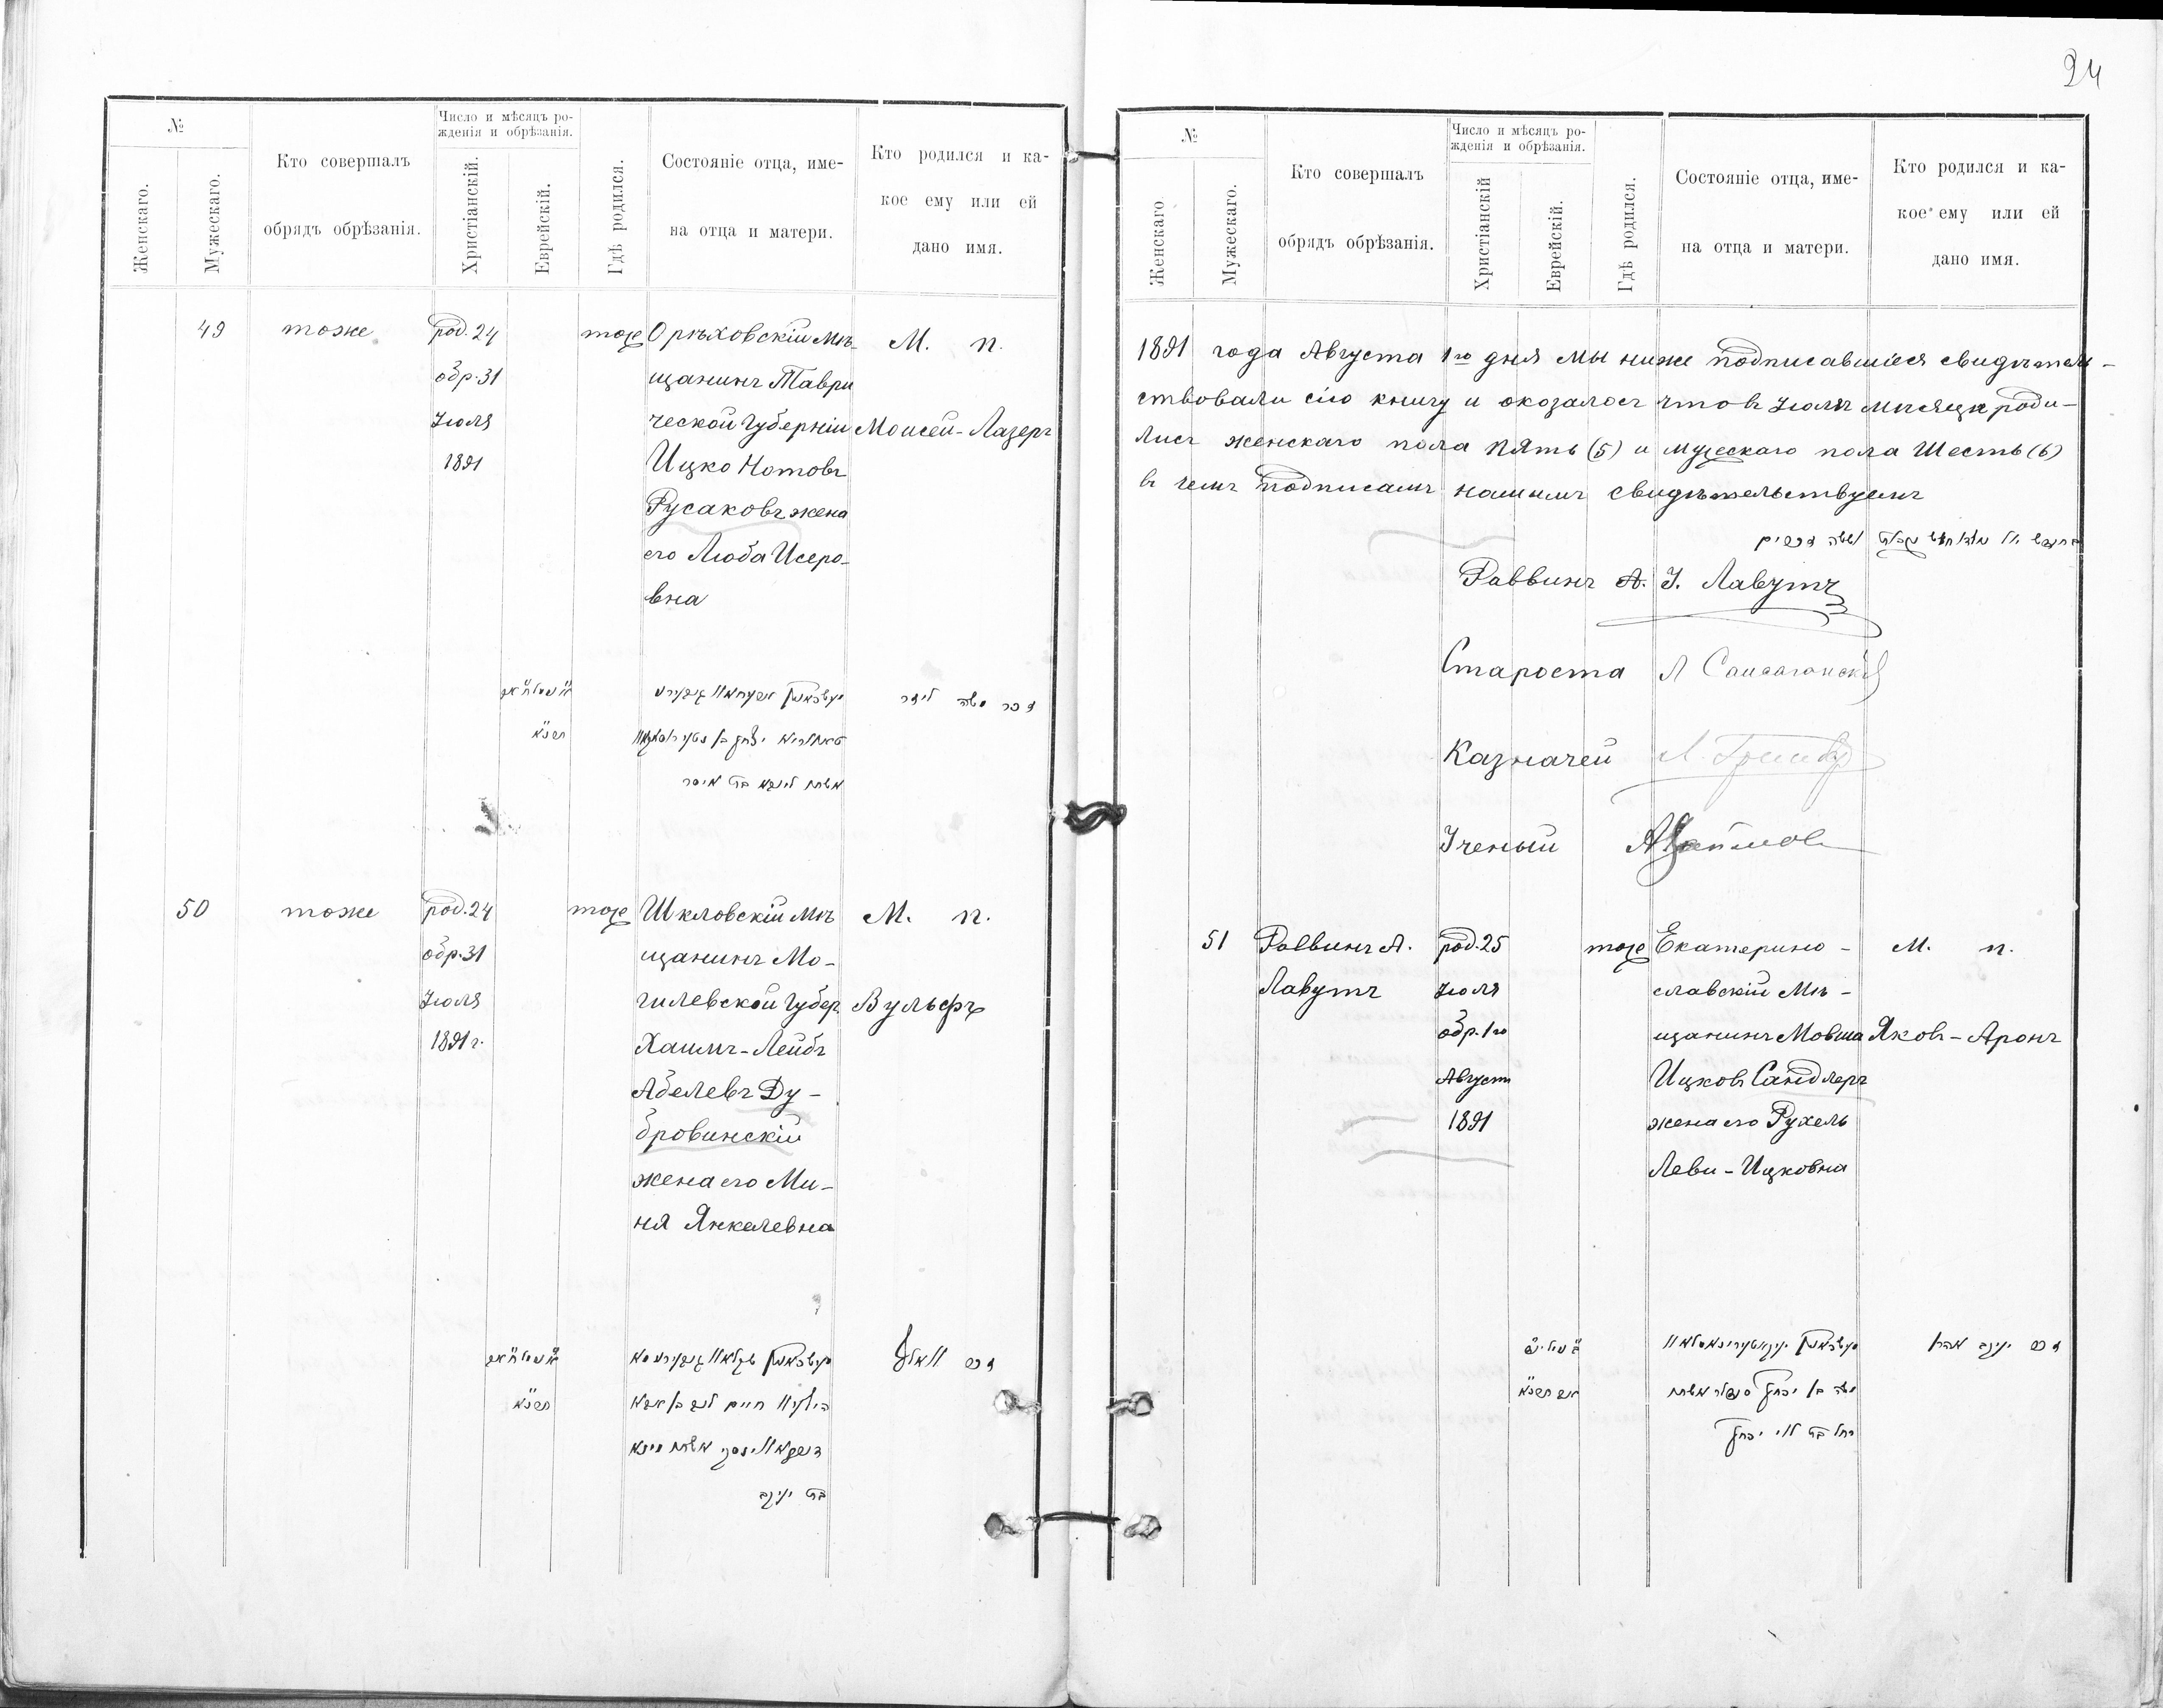 24
№
Женскаго.
Мужескаго.
Кто совершалъ
обрядъ обрѣзанія.
Число и мѣсяцъ ро-
жденія и обрѣзанія.
Христіанскій.
Еврейскій.
Гдѣ родился.
Состояніе отца, име-
на отца и матери.
Кто родился и ка-
кое ему или ей
дано имя.
49
тоже
род. 24
обр. 31
Іюля
1891
тоже
Орѣховскій мѣ-
щанинъ Таври
ческой губерніи
Ицко Нотовъ
Русаковъ жена
его Люба Исеро-
вна
М. п.
Моисей-Лазерь
זכר משה ליזר
אשתו ליובא בת איסר
50
тоже
род. 24
обр. 31
Іюля
1891 г.
тоже
Шкловскій мѣ
щанинъ Мо-
гилевской губер.
Хаимъ-Лейбъ
Абелевъ Ду-
бровинскій
жена его Ми-
ня Янкелевна
М. п.
Вульфъ
בת יעקב
№
Женскаго
Мужескаго.
Кто совершалъ
обрядъ обрѣзанія.
Число и мѣсяцъ ро-
жденія и обрѣзанія.
Христіанскій
Еврейскій.
Гдѣ родился.
Состояніе отца, име-
на отца и матери.
Кто родился и ка-
кое ему или ей
дано имя.
1891 года Августа 1го дня мы ниже подписавшіеся свидѣтель-
ствовали сію книгу и оказалось что въ Іюлѣ мѣсяцѣ роди-
лись женскаго пола пять (5) и мужескаго пола шесть (6)
въ чемъ подписомъ нашимъ свидѣтельствуемъ
Раввинъ А. І. Лавутъ
Староста Л
Казначей Л.
Ученый
51
Раввинъ А.
Лавутъ
род. 25
Іюля
обр. 1го
Август
1891
тоже
Екатерино-
славскій мѣ-
щанинъ Мовша
Ицковъ Сандлеръ
жена его Рухель
Леви-Ицковна
М. п.
Яковъ-Аронъ
זכר יעקב אהרן
משה בן יצחק סנדלר אשתו
רחל בת לוי יצחק